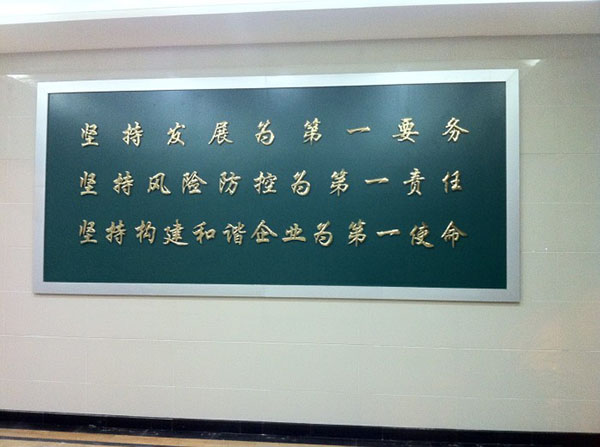 坚持发展为第一要务
坚持风险防控为第一责任
坚持构建和谐企业为第一使命